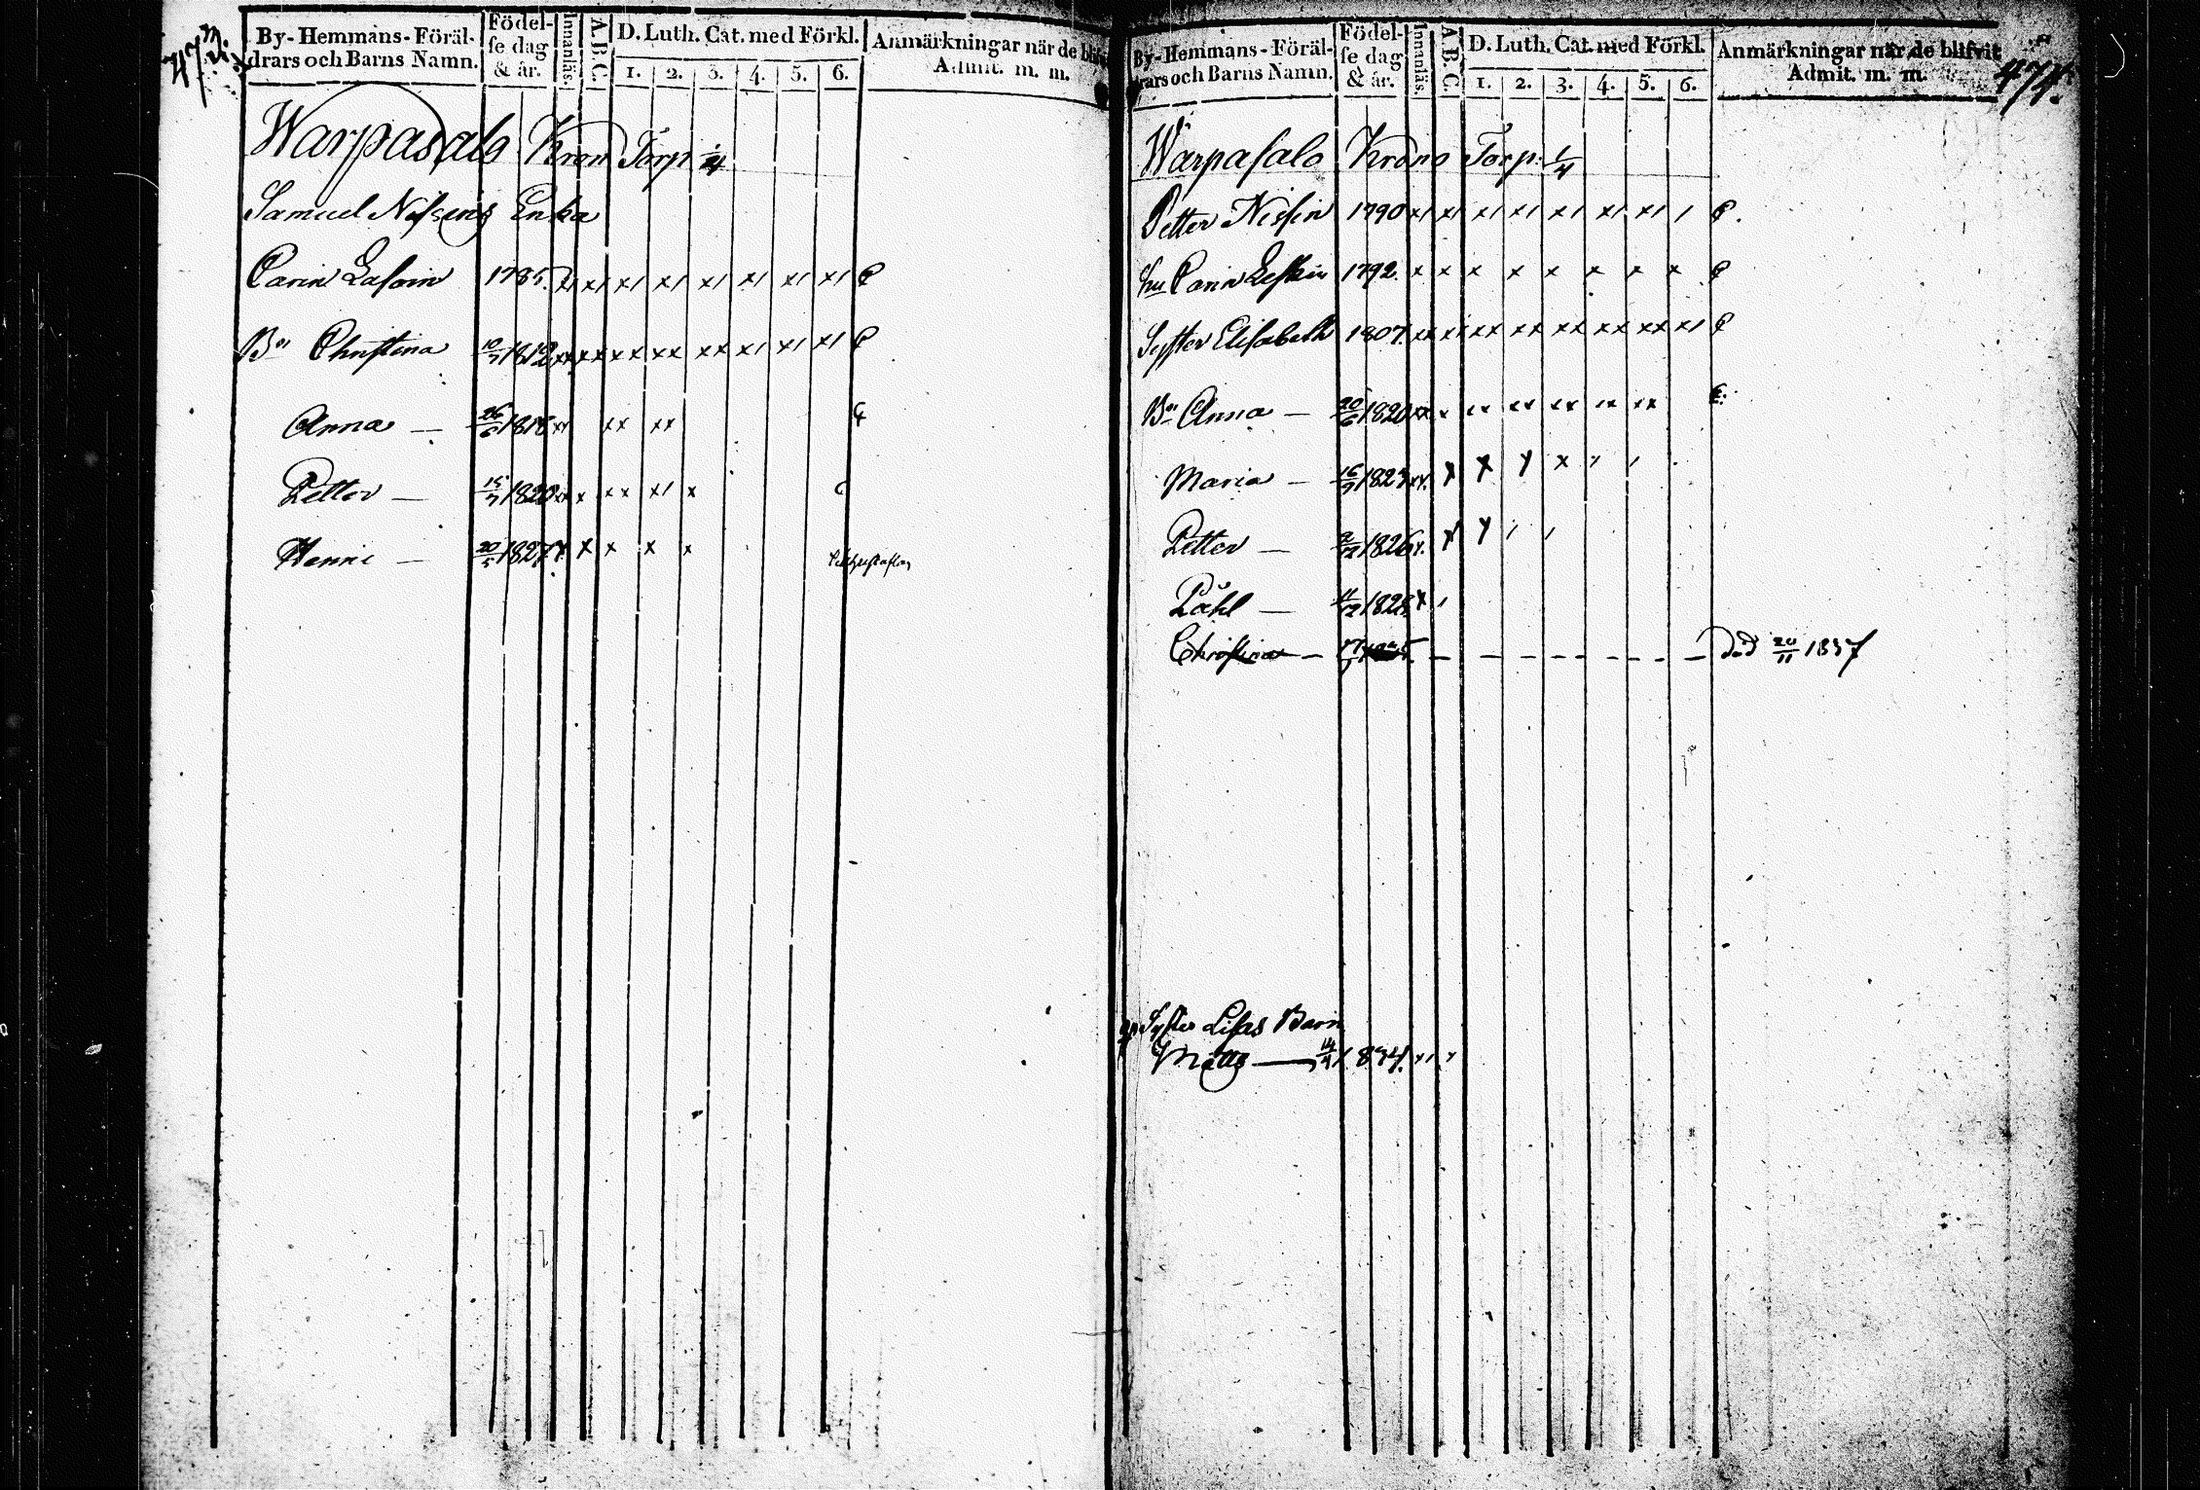 473.
By-Hemmans-Föräl-
drars och Barns Namn.
Födel-
se dag
& år.
Innanläs.
A.B.C.
D. Luth. Cat. med Förkl.
1. 2. 3. 4. 5. 6.
Anmärkningar när de blifvit
Admit. m. m.
Warpasalo Kron Torp 1/4
Samuel Nissins Enka
Carin Lasoin 1785. x/ x/ x/ x/ x/ x/ x/ x/ C
Bn Christina 10/7 1812 xx xx xx xx xx x/ x/ x/ C
Anna — 26/6 1818 xx xx xx C
Petter — 15/7 1820 xx x xx x/ x C
Henric — 20/5 1827 x x x x x
474.
By-Hemmans-Föräl-
drars och Barns Namn.
Födel-
se dag
& år.
Innanläs.
A.B.C.
D. Luth. Cat. med Förkl.
1. 2. 3. 4. 5. 6.
Anmärkningar när de blifvit
Admit. m. m.
Warpasalo Krono Torp: 1/4
Petter Nissin 1790 x/ x/ x/ x/ x/ x/ x/ / C.
hu Carin Leskin 1792. x x x x x x x x C
Syster Elisabeth 1807. xx xx xx xx xx xx xx x/ C
Bn Anna — 20/6 1820 xx x xx xx xx xx xx C.
Maria — 16/9 1823 xx. x x y x / /
Petter — 2/12 1826 x. x y / /
Påhl — 11/12 1828. x /
Christina — — — — — — — — död 20/11 1837
Syster Lisas Barn
Matts — 14/4 1834. x/ x